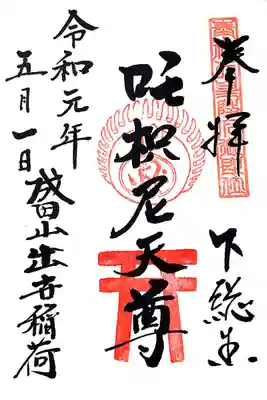 奉拝
下総国
吒枳尼天尊
令和元年
五月一日
成田山出世稲荷